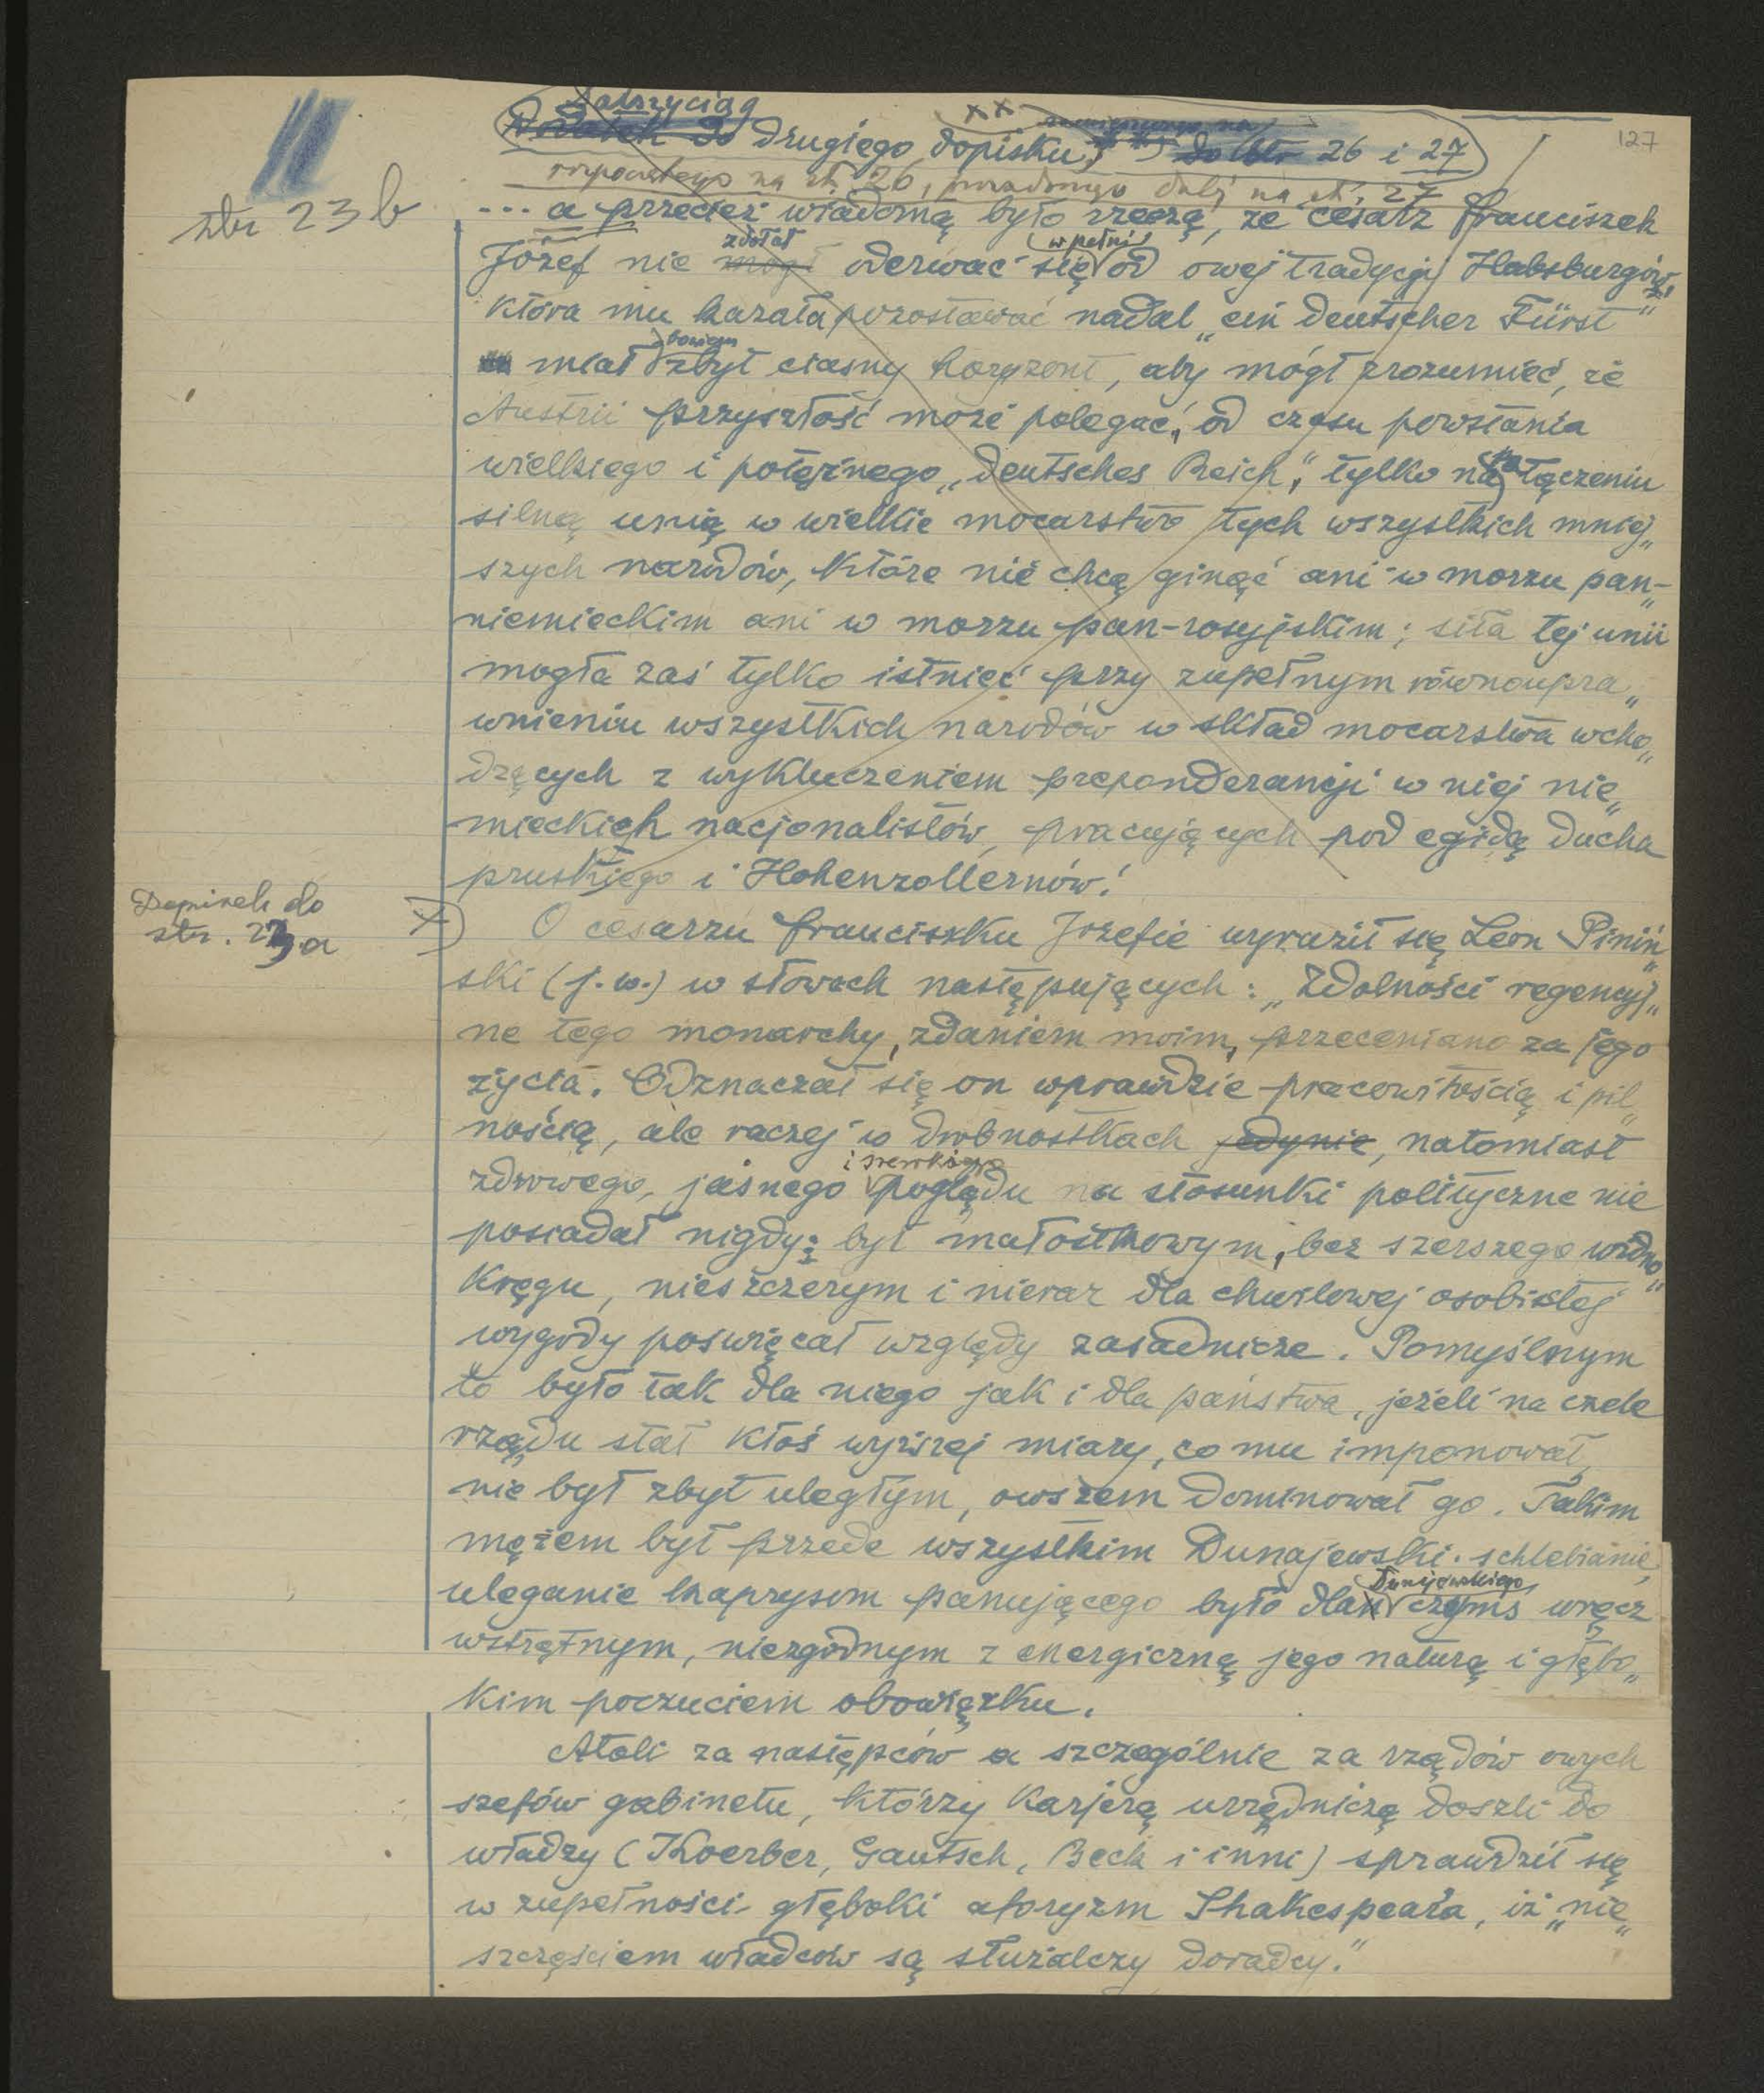 127
Dalszy ciąg
drugiego dopisku xx 26 i 27
rozpoczętego na str. 26, dalej na str. 27
str 23 b
... a przecież wiadomą było rzeczą, że cesarz Franciszek
Józef nie zdołał oderwać się w pełni od owej tradycji Habsburgów,
która mu kazała pozostawać nadal „ein deutscher Fürst”
miał bowiem zbyt ciasny horyzont, aby mógł zrozumieć, że
Austrii przyszłość może polegać, od czasu powstania
wielkiego i potężnego „deutsches Reich”, tylko na łączeniu
silną unią w wielkie mocarstwo tych wszystkich mniej„
szych narodów, które nie chcą ginąć ani w morzu pan-„
niemieckim ani w morzu pan-rosyjskim; siła tej unii
mogła zaś tylko istnieć przy zupełnym równoupra„
wnieniu wszystkich narodów w skład mocarstwa wcho„
dzących z wykluczeniem preponderancji w niej nie„
mieckich nacjonalistów, pracujących pod egidą ducha
pruskiego i Hohenzollernów!
Dopisek do
str. 23 a
x) O cesarzu Franciszku Józefie wyraził się Leon Piniń„
ski (j.w.) w słowach następujących: „Zdolności regencyj„
ne tego monarchy, zdaniem moim, przeceniano za jego
życia. Odznaczał się on wprawdzie pracowitością i pil„
nością, ale raczej w drobnostkach jedynie, natomiast
zdrowego, jasnego i szerokiego poglądu na stosunki polityczne nie
posiadał nigdy; był małostkowym, bez szerszego widno„
kręgu, nieszczerym i nieraz dla chwilowej osobistej
wygody poświęcał względy zasadnicze. Pomyślnym
to było tak dla niego jak i dla państwa, jeżeli na czele
rządu stał ktoś wyższej miary, co mu imponował,
nie był zbyt uległym, owszem dominował go. Takim
mężem był przede wszystkim Dunajewski. schlebianie,
uleganie kaprysom panującego było dla Dunajewskiego czymś wręcz
wstrętnym, niezgodnym z energiczną jego naturą i głębo„
kim poczuciem obowiązku.
Atoli za następców a szczególnie za rządów owych
szefów gabinetu, którzy karjerą urzędniczą doszli do
władzy (Koerber, Gautsch, Beck i inni) sprawdził się
w zupełności głęboki aforyzm Shakespeara, iż „nie„
szczęściem władców są służalczy doradcy.”